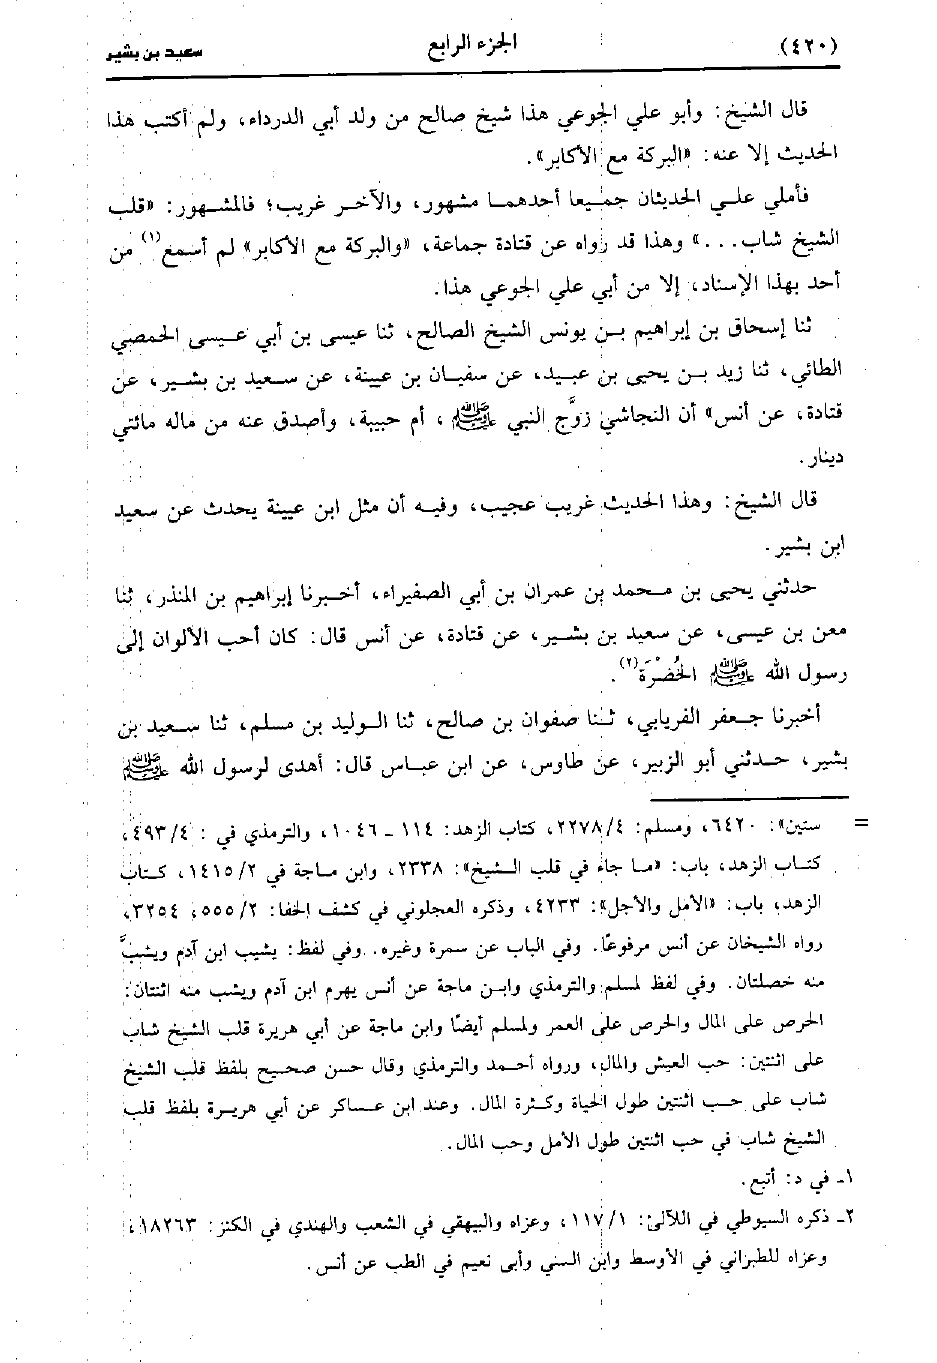 (٤٢٠) الجزء الرابع سعيد بن بشير
قال الشيخ: وأبو علي الجوعي هذا شيخ صالح من ولد أبي الدرداء، ولم أكتب هذا
الحديث إلا عنه: «البركة مع الأكابر».
فأملي علي الحديثان جميعا أحدهما مشهور، والآخر غريب؛ فالمشهور: «قلب
الشيخ شاب...» وهذا قد رواه عن قتادة جماعة، «والبركة مع الأكابر» لم أسمع(١) من
أحد بهذا الإسناد، إلا من أبي علي الجوعي هذا.
ثنا إسحاق بن إبراهيم بن يونس الشيخ الصالح، ثنا عيسى بن أبي عيسى الحمصي
الطائي، ثنا زيد بن يحيى بن عبيد، عن سفيان بن عيينة، عن سعيد بن بشير، عن
قتادة، عن أنس» أن النجاشي زوَّج النبي ﷺ، أم حبيبة، وأصدق عنه من ماله مائتي
دينار.
قال الشيخ: وهذا الحديث غريب عجيب، وفيه أن مثل ابن عيينة يحدث عن سعيد
ابن بشير.
حدثني يحيى بن محمد بن عمران بن أبي الصفيراء، أخبرنا إبراهيم بن المنذر، ثنا
معن بن عيسى، عن سعيد بن بشير، عن قتادة، عن أنس قال: كان أحب الألوان إلى
رسول الله ﷺ الخُضْرَة(٢).
أخبرنا جعفر الفريابي، ثنا صفوان بن صالح، ثنا الوليد بن مسلم، ثنا سعيد بن
بشير، حدثني أبو الزبير، عن طاوس، عن ابن عباس قال: أهدى لرسول الله ﷺ
= ستين»: ٦٤٢٠، ومسلم: ٢٢٧٨/٤، كتاب الزهد: ١١٤ - ١٠٤٦، والترمذي في : ٤٩٣/٤،
كتاب الزهد، باب: «ما جاء في قلب الشيخ»: ٢٣٣٨، وابن ماجة في ١٤١٥/٢، كتاب
الزهد، باب: «الأمل والأجل»: ٤٢٣٣، وذكره العجلوني في كشف الخفا: ٥٥٥/٢، ٣٢٥٤،
رواه الشيخان عن أنس مرفوعًا. وفي الباب عن سمرة وغيره. وفي لفظ: يشيب ابن آدم ويشبَّ
منه خصلتان. وفي لفظ لمسلم والترمذي وابن ماجة عن أنس يهرم ابن آدم ويشب منه اثنتان:
الحرص على المال والحرص على العمر ولمسلم أيضًا وابن ماجة عن أبي هريرة قلب الشيخ شاب
على اثنتين: حب العيش والمال، ورواه أحمد والترمذي وقال حسن صحيح بلفظ قلب الشيخ
شاب على حب اثنتين طول الحياة وكثرة المال. وعند ابن عساكر عن أبي هريرة بلفظ قلب
الشيخ شاب في حب اثنتين طول الأمل وحب المال.
١- في د: أتبع.
٢- ذكره السيوطي في اللآلئ: ١١٧/١، وعزاه والبيهقي في الشعب والهندي في الكنز: ١٨٢٦٣،
وعزاه للطبراني في الأوسط وابن السني وأبى نعيم في الطب عن أنس.